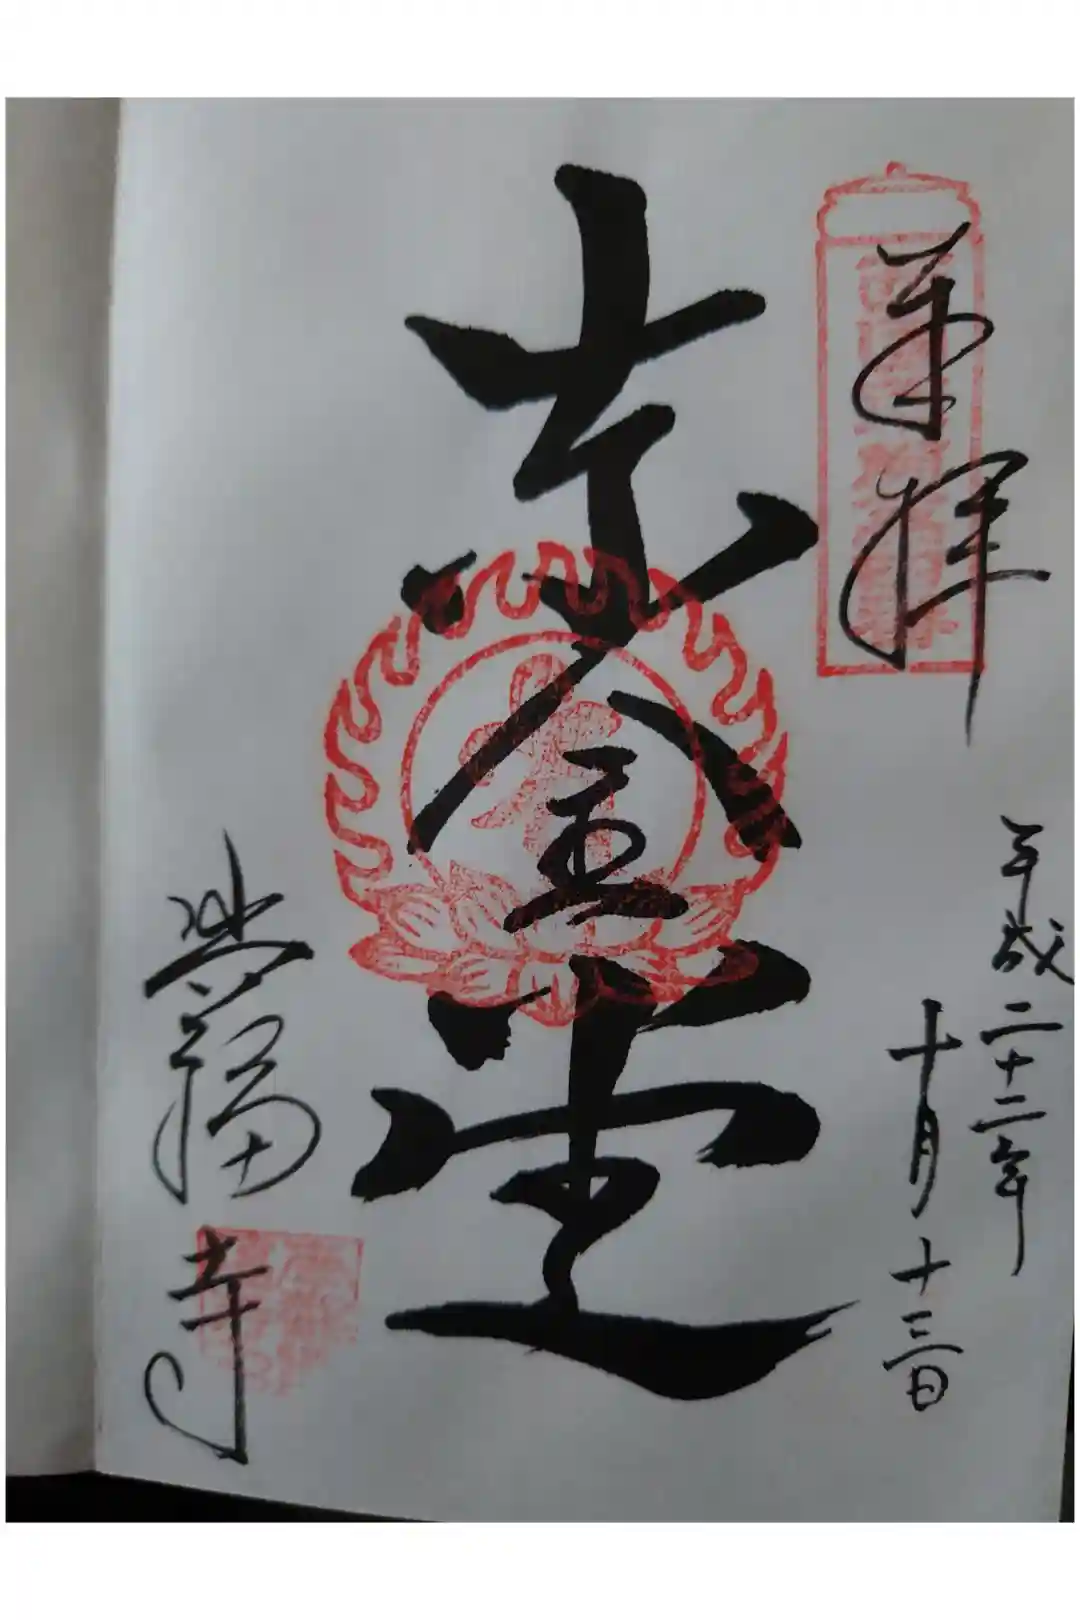 奉拝
平成二十二年
十月十三日
東金堂
興福寺